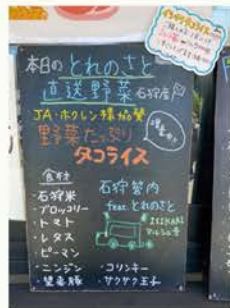 本日のとれのさと
直送野菜 石狩産
JA・ホクレン様協賛
野菜たっぷり
タコライス
食材
・石狩米
・ブロッコリー
・トマト
・レタス
・ピーマン
・ニンジン
・望来豚
石狩管内
feat.とれのさと
ISHIKARI
マルシェ号
・コリンキー
・サクサク玉子